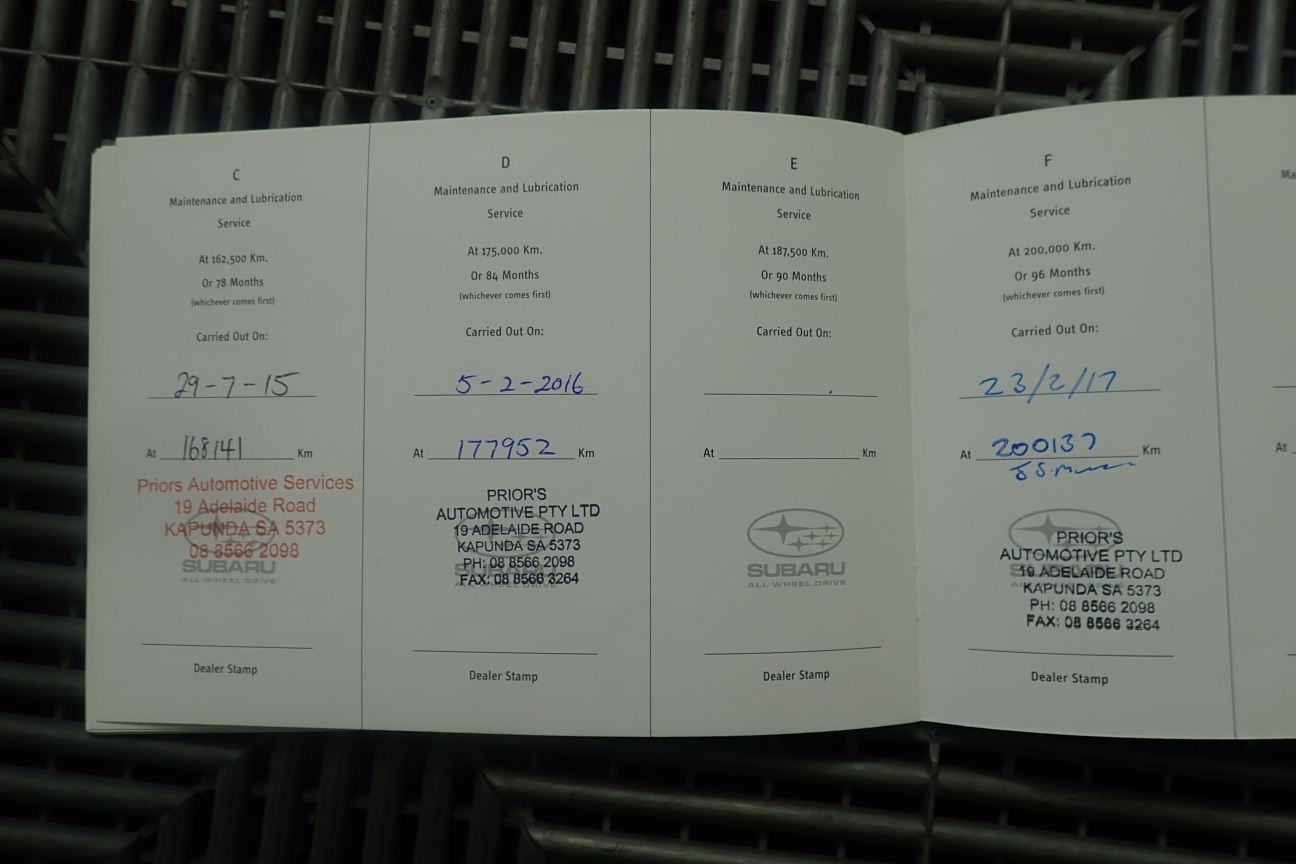 C
Maintenance and Lubrication
Service
At 162,500 Km.
Or 78 Months
(whichever comes first)
Carried Out On:
29-7-15
At 168141 Km
Priors Automotive Services
19 Adelaide Road
KAPUNDA SA 5373
08 8566 2098
SUBARU
ALL-WHEEL DRIVE
Dealer Stamp
D
Maintenance and Lubrication
Service
At 175,000 Km.
Or 84 Months
(whichever comes first)
Carried Out On:
5-2-2016
At 177952 Km
PRIOR'S
AUTOMOTIVE PTY LTD
19 ADELAIDE ROAD
KAPUNDA SA 5373
PH: 08 8566 2098
FAX: 08 8566 3264
Dealer Stamp
E
Maintenance and Lubrication
Service
At 187,500 Km.
Or 90 Months
(whichever comes first)
Carried Out On:
At Km
SUBARU
ALL-WHEEL DRIVE
Dealer Stamp
F
Maintenance and Lubrication
Service
At 200,000 Km.
Or 96 Months
(whichever comes first)
Carried Out On:
23/2/17
At 200137 Km
PRIOR'S
AUTOMOTIVE PTY LTD
19 ADELAIDE ROAD
KAPUNDA SA 5373
PH: 08 8566 2098
FAX: 08 8566 3264
Dealer Stamp
Ma
At